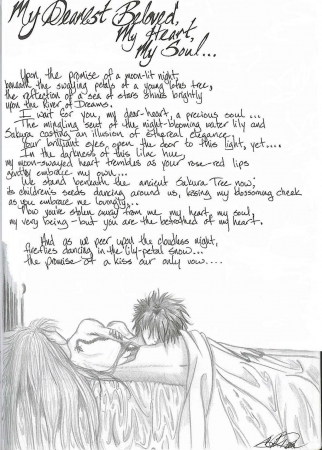 My Dearest Beloved,
My Heart,
My Soul...
Upon, the promise of a moon-lit night,
beneath the swaying petals of a young lotus tree,
the reflection of a sea of stars shines brightly
upon the River of Dreams.
I wait for you, my dear-heart, a precious soul ...
The mingling scent of the night-blooming water lily and
Sakura casting an illusion of ethereal elegance.
Your brilliant eyes open the door to this light, yet....
In the darkness of this lilac hue,
my moon-swayed heart trembles as your rose-red lips
gently embrace my own...
We stand beneath the ancient Sakura Tree now;
its children's seeds dancing around us, kissing my blossomag cheek
as you embrace me lovingly...
Now you've stolen away from me my heart, my soul,
my very being - but you are the betrothed of my heart.
And as we peer upon the cloudless night,
fireflies dancing in the lily-petal snow...
the promise of a kiss our only vow....